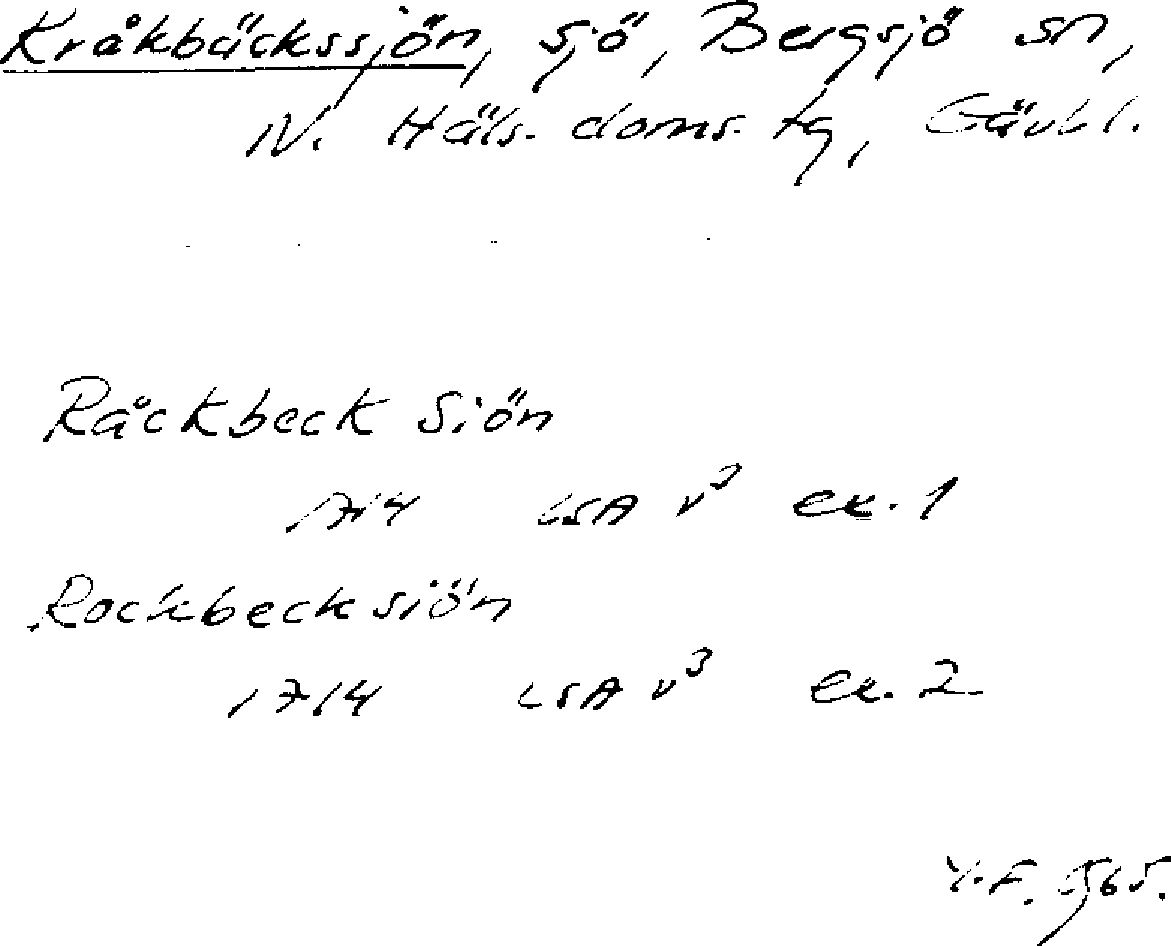 Kråkbäckssjön, sjö, Bergsjö sn,
N. Häls. doms. tg, Gävbl.
Råckbeck Siön
1714 LSA v3 ex. 1
Rockbecksiön
1714 LSA v3 ex. 2
Y.F. 1965.